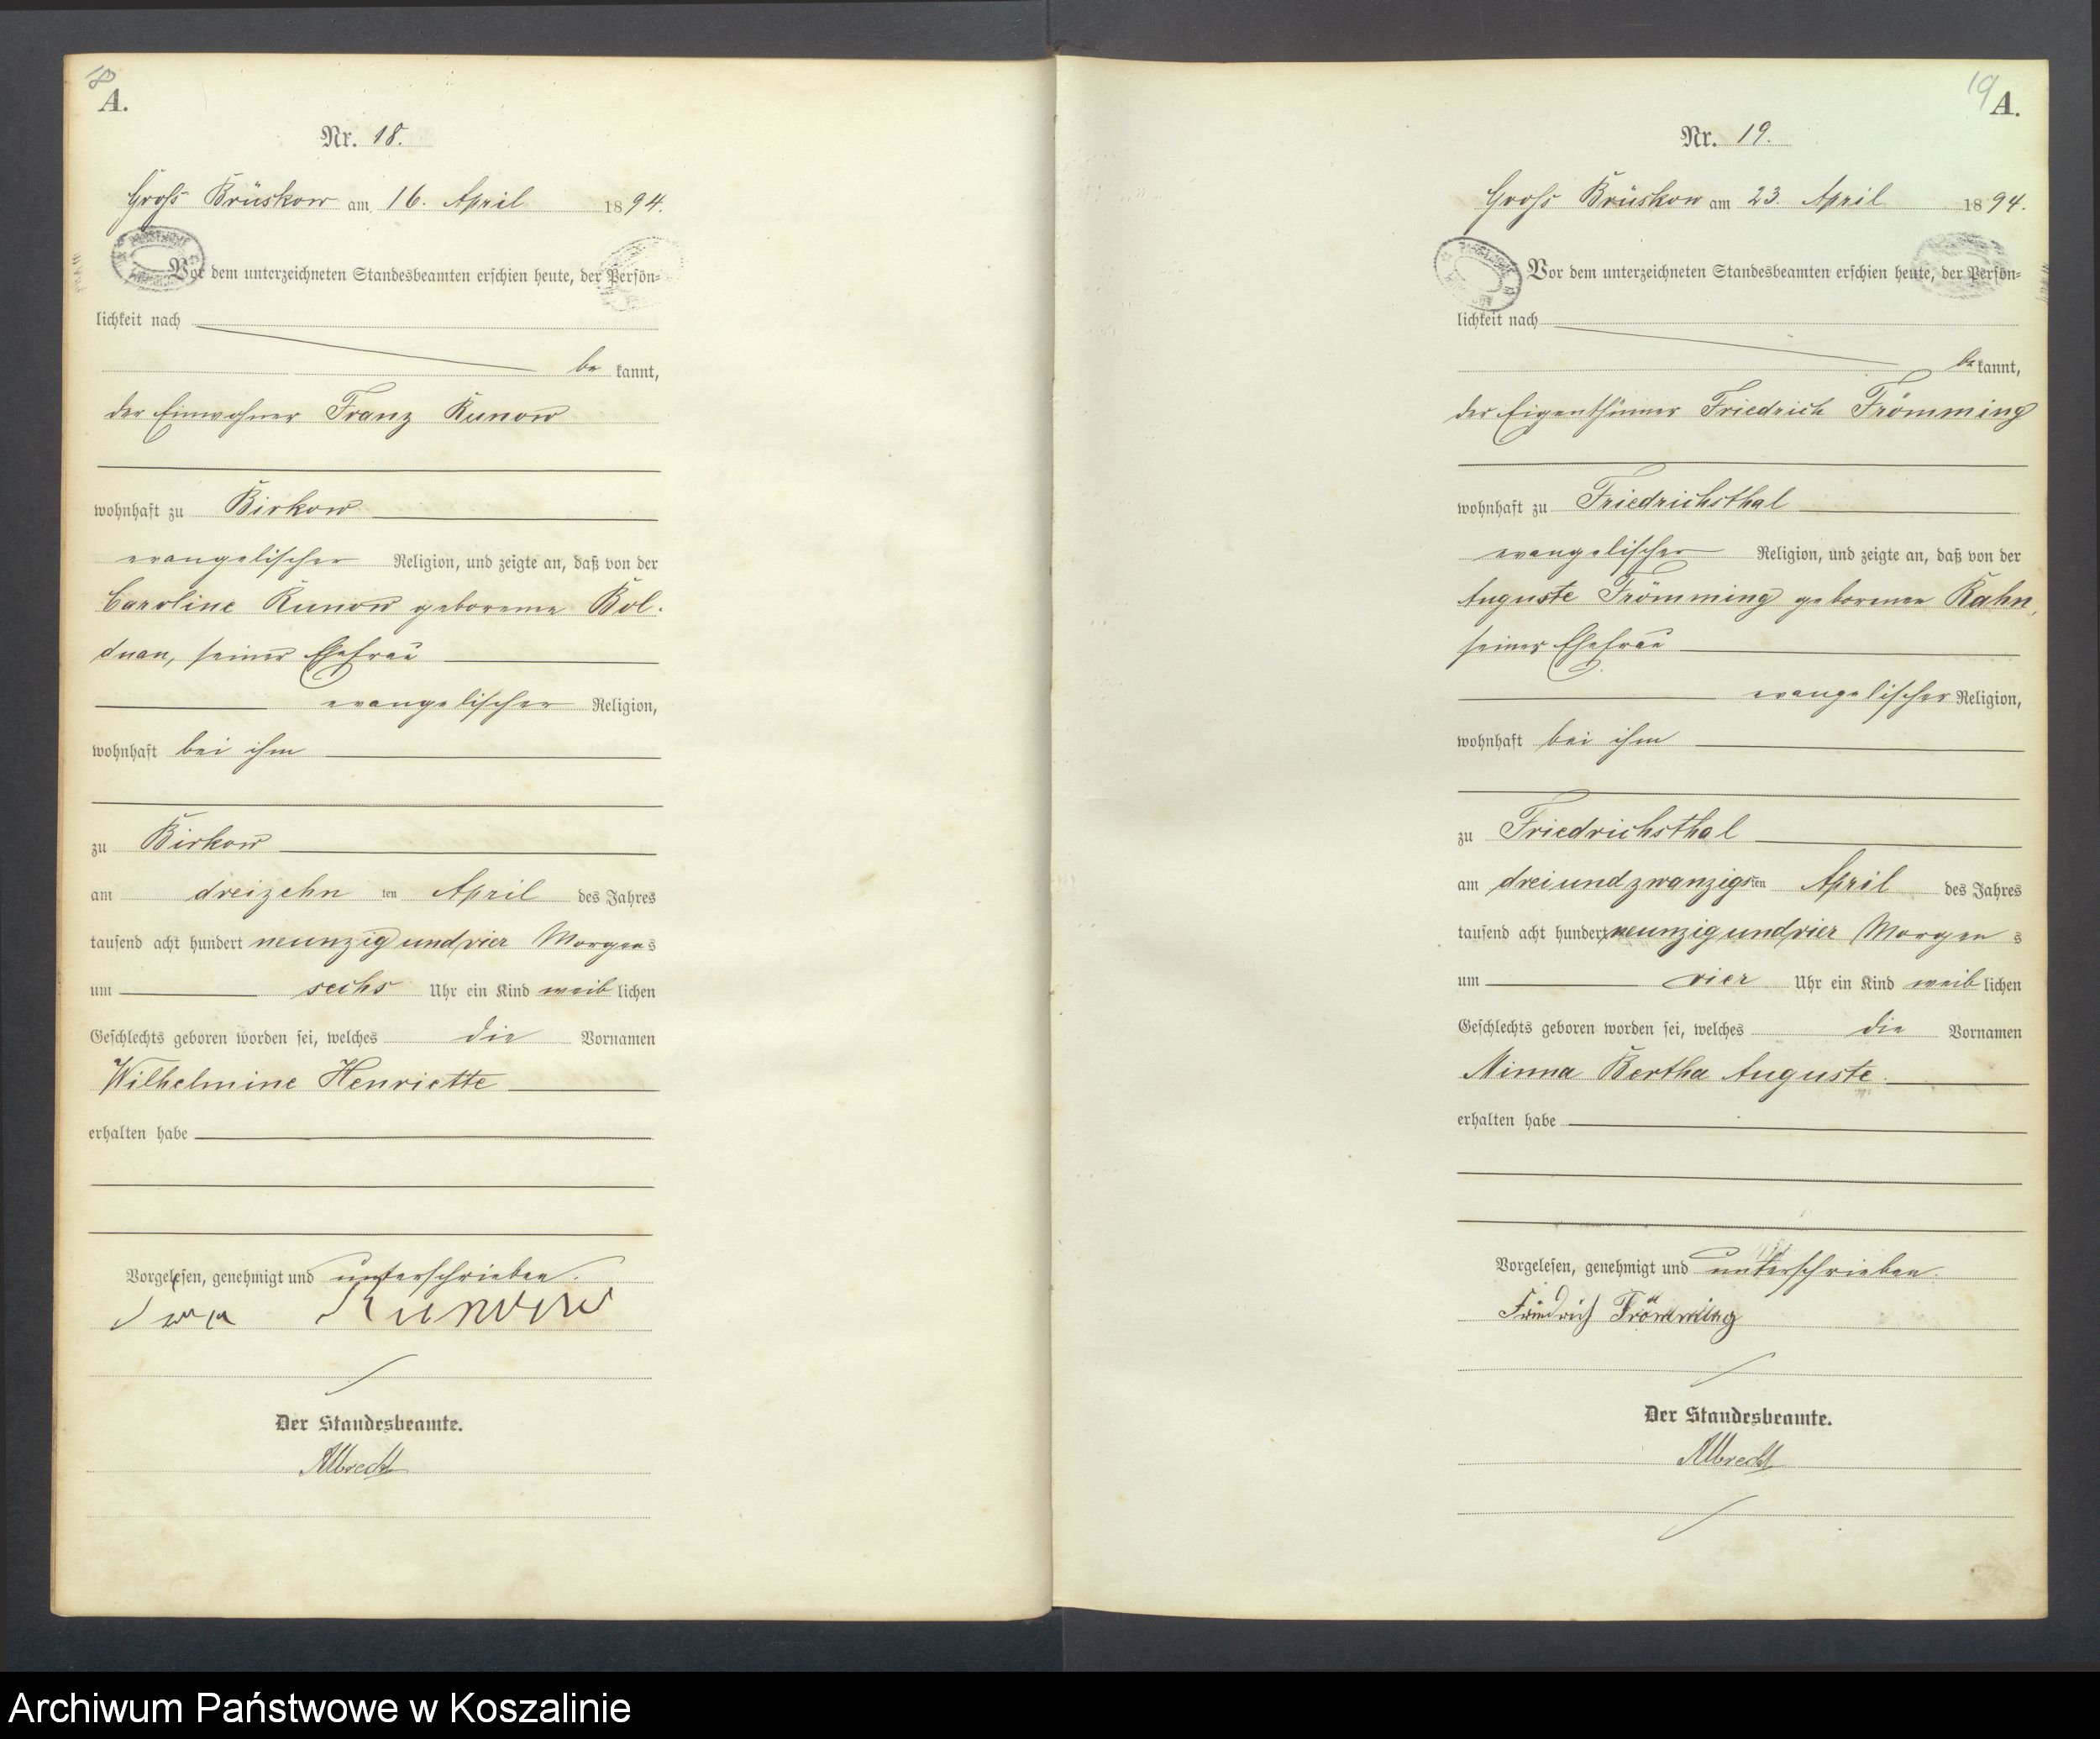 18
A.
Nr. 18.
Groß Brüskow am 16. April 1894.
Vor dem unterzeichneten Standesbeamten erschien heute, der Persön-
lichkeit nach
be kannt,
der Einwohner Franz Kunow
wohnhaft zu Birkow
evangelischer Religion, und zeigte an, daß von der
Caroline Kunow geborene Bol-
duan, seiner Ehefrau
evangelischer Religion,
wohnhaft bei ihm
zu Birkow
am dreizehn ten April des Jahres
tausend acht hundert neunzig und vier Morgens
um sechs Uhr ein Kind weiblichen
Geschlechts geboren worden sei, welches die Vornamen
Wilhelmine Henriette
erhalten habe
Vorgelesen, genehmigt und unterschrieben.
Kunow
Der Standesbeamte.
Albrecht
19
A.
Nr. 19.
Groß Brüskow am 23. April 1894.
Vor dem unterzeichneten Standesbeamten erschien heute, der Persön-
lichkeit nach
be kannt,
der Eigenthümer Friedrich Frömming
wohnhaft zu Friedrichsthal
evangelischer Religion, und zeigte an, daß von der
Auguste Frömming geborenen Kahn,
seiner Ehefrau
evangelischer Religion,
wohnhaft bei ihm
zu Friedrichsthal
am dreiundzwanzigsten April des Jahres
tausend acht hundert neunzig und vier Morgens
um vier Uhr ein Kind weiblichen
Geschlechts geboren worden sei, welches die Vornamen
Minna Bertha Auguste.
erhalten habe
Vorgelesen, genehmigt und unterschrieben.
Friedrich Frömming
Der Standesbeamte.
Albrecht
Archiwum Państwowe w Koszalinie